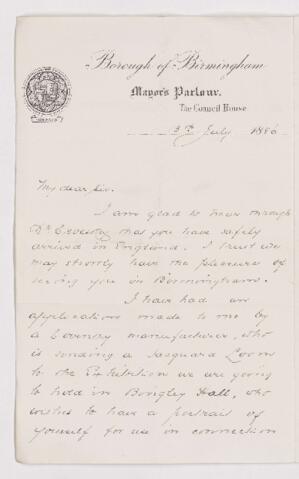 Borough of Birmingham
Mayor's Parlour.
The Council House
3rd July 1886
My dear Sir.
I am glad to hear through
Dr that you have safely
arrived in England. I trust we
may shortly have the pleasure of
seeing you in Birmingham.
I have had an
application made to me by
a Coventry manufacturer, who
is sending a Jacquard Loom
to the Exhibition we are going
to hold in Bingley Hall, who
wishes to have a portrait of
yourself for use in connection